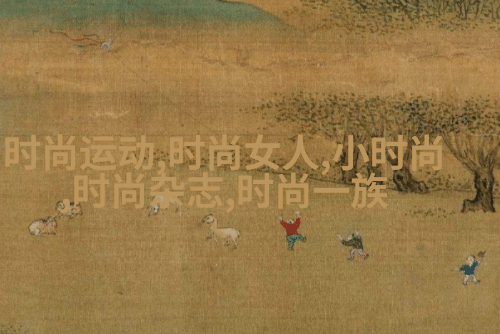 时尚运动,时尚女人,小时尚
,时尚杂志,时尚一族